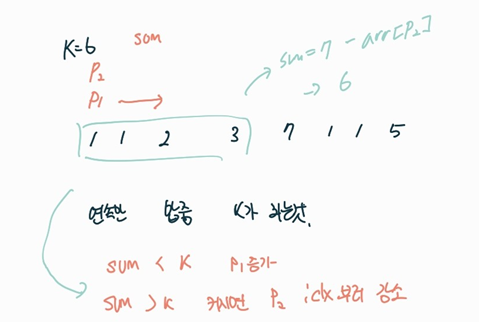 K=6 sum
P2
P1 →
sum=7 - arr[P2]
→ 6
1 1 2 3 7 1 1 5
연속한 합중 K가 되는것.
sum < K P1증가
sum > K 커지면 P2 idx부터 감소